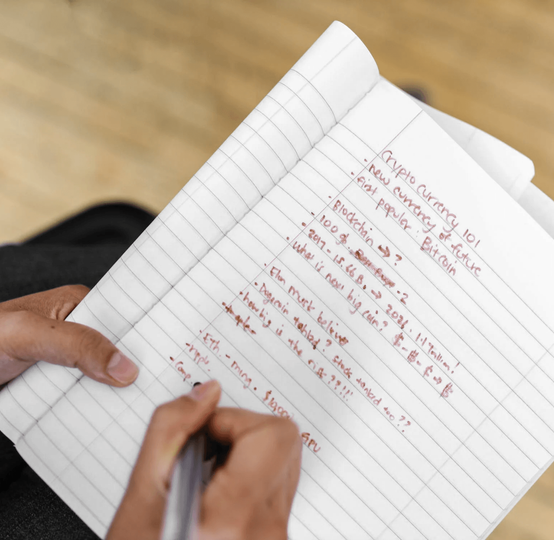 Crypto currency 101
• New currency of future
• First popular : Bitcoin
• Blockchain → ?
• 100 % - 2
• 2017 - 15.66 B. → 2021 : 1.1 Trillion!
• What is now big coin? $ - ₿ - € → ₿
• Elon musk believer
• Dogecoin tanked ? stock tanked too ??
• how big is the risk ??!!
• Tether
• Eth. - mining . $1000 GPU
• ripple